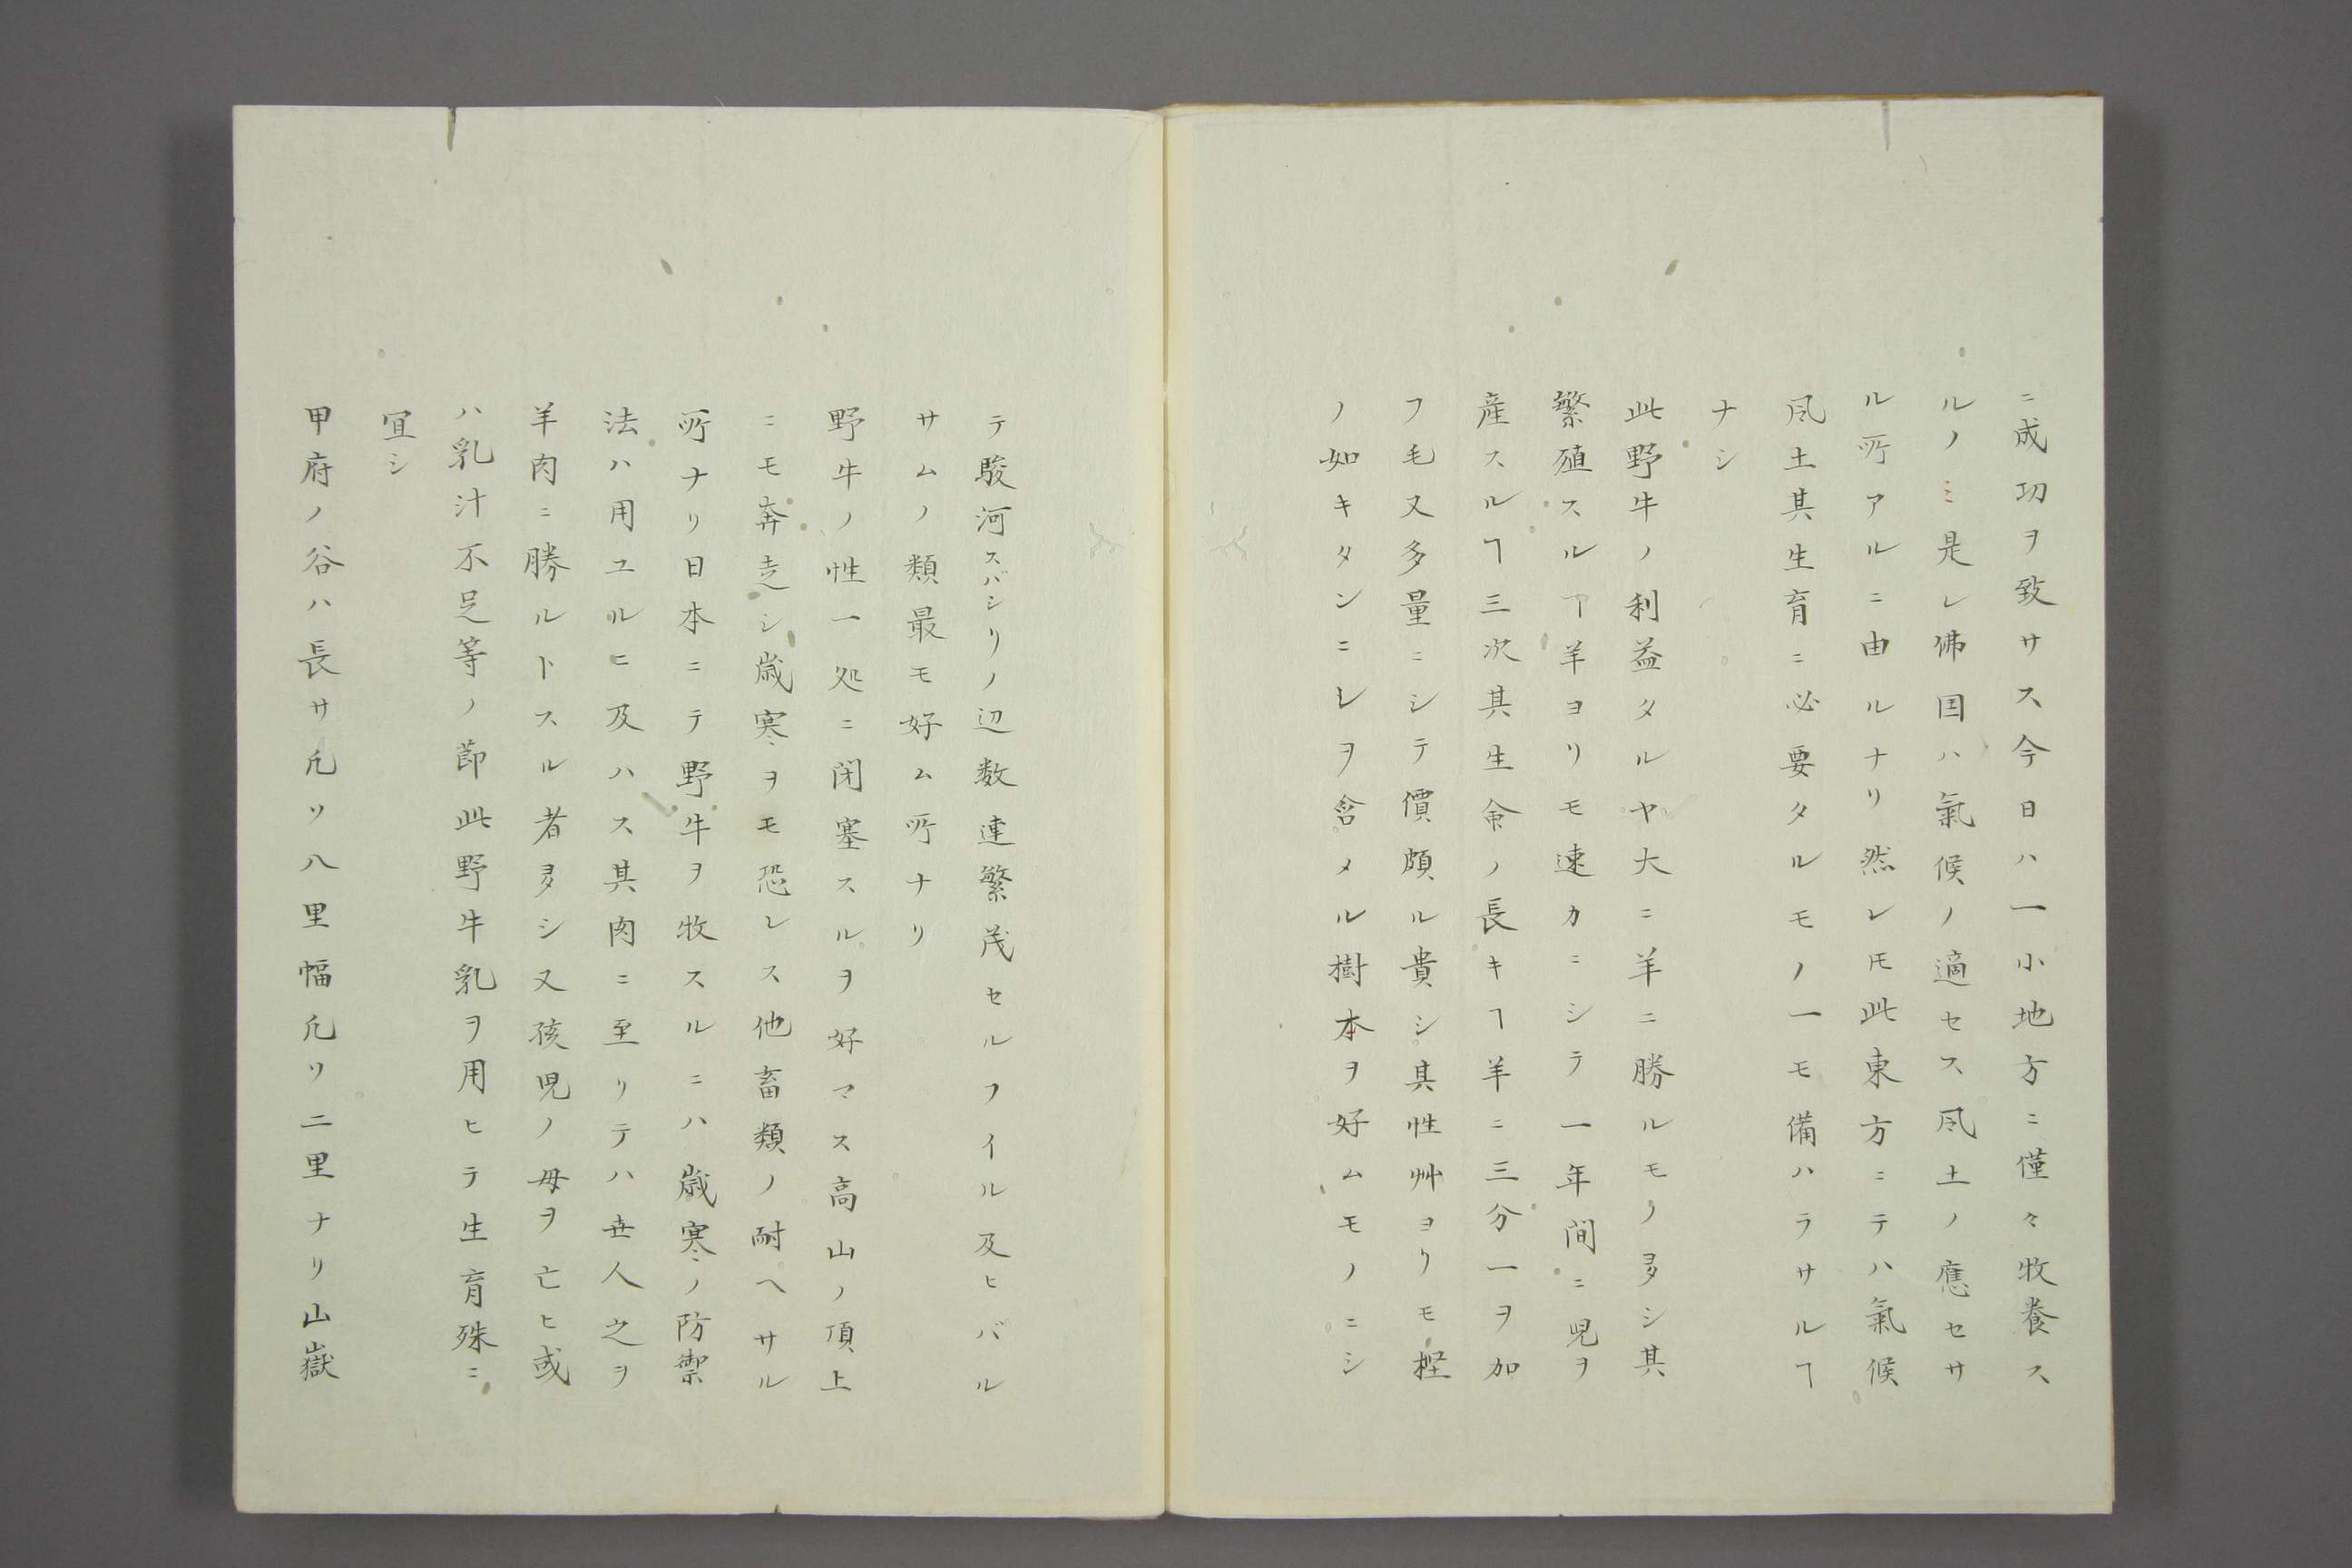 ニ成功ヲ致サス今日ハ一小地方ニ僅々牧養ス
ルノミ是レ佛国ハ氣候ノ適セス風土ノ應セサ
ル所アルニ由ルナリ然レ𪜈此東方ニテハ氣候
風土其生育ニ必要タルモノ一モ備ハラサルヿ
ナシ
此野牛ノ利益タルヤ大ニ羊ニ勝ルモノ多シ其
繁殖スルヿ羊ヨリモ速カニシテ一年間ニ児ヲ
産スルヿ三次其生命ノ長キヿ羊ニ三分一ヲ加
フ毛又多量ニシテ價頗ル貴シ其性艸ヨリモ樫
ノ如キタンニレヲ含メル樹本ヲ好ムモノニシ
テ駿河スバシリノ辺数連繁茂セルフイル及ヒバル
サムノ類最モ好ム所ナリ
野牛ノ性一処ニ閉塞スルヲ好マス高山ノ頂上
ニモ奔走シ歳寒ヲモ恐レス他畜類ノ耐ヘサル
所ナリ日本ニテ野牛ヲ牧スルニハ歳寒ノ防禦
法ハ用ユルニ及ハス其肉ニ至リテハ世人之ヲ
羊肉ニ勝ルトスル者多シ又孩児ノ母ヲ亡ヒ或
ハ乳汁不足等ノ節此野牛乳ヲ用ヒテ生育殊ニ
宜シ
甲府ノ谷ハ長サ凡ソ八里幅凡ソ二里ナリ山嶽